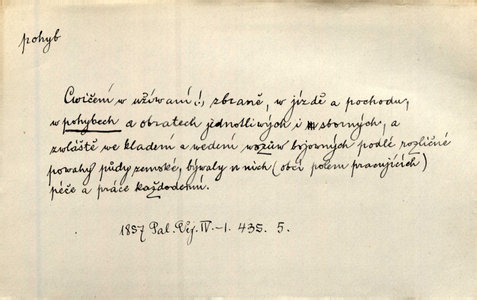 pohyb
Cwičení w užíwaní (!) zbraně, w jízdě a pochodu,
w pohybech a obratech jednotliwých i sborných, a
zwláště we kladení a wedení wozůw bojowných podlé rozličné
powahy půdy zemské, býwaly u nich (obcí polem pracujících)
péče a práce každodenní.
1857 Pal. Děj. IV-1. 435. 5.